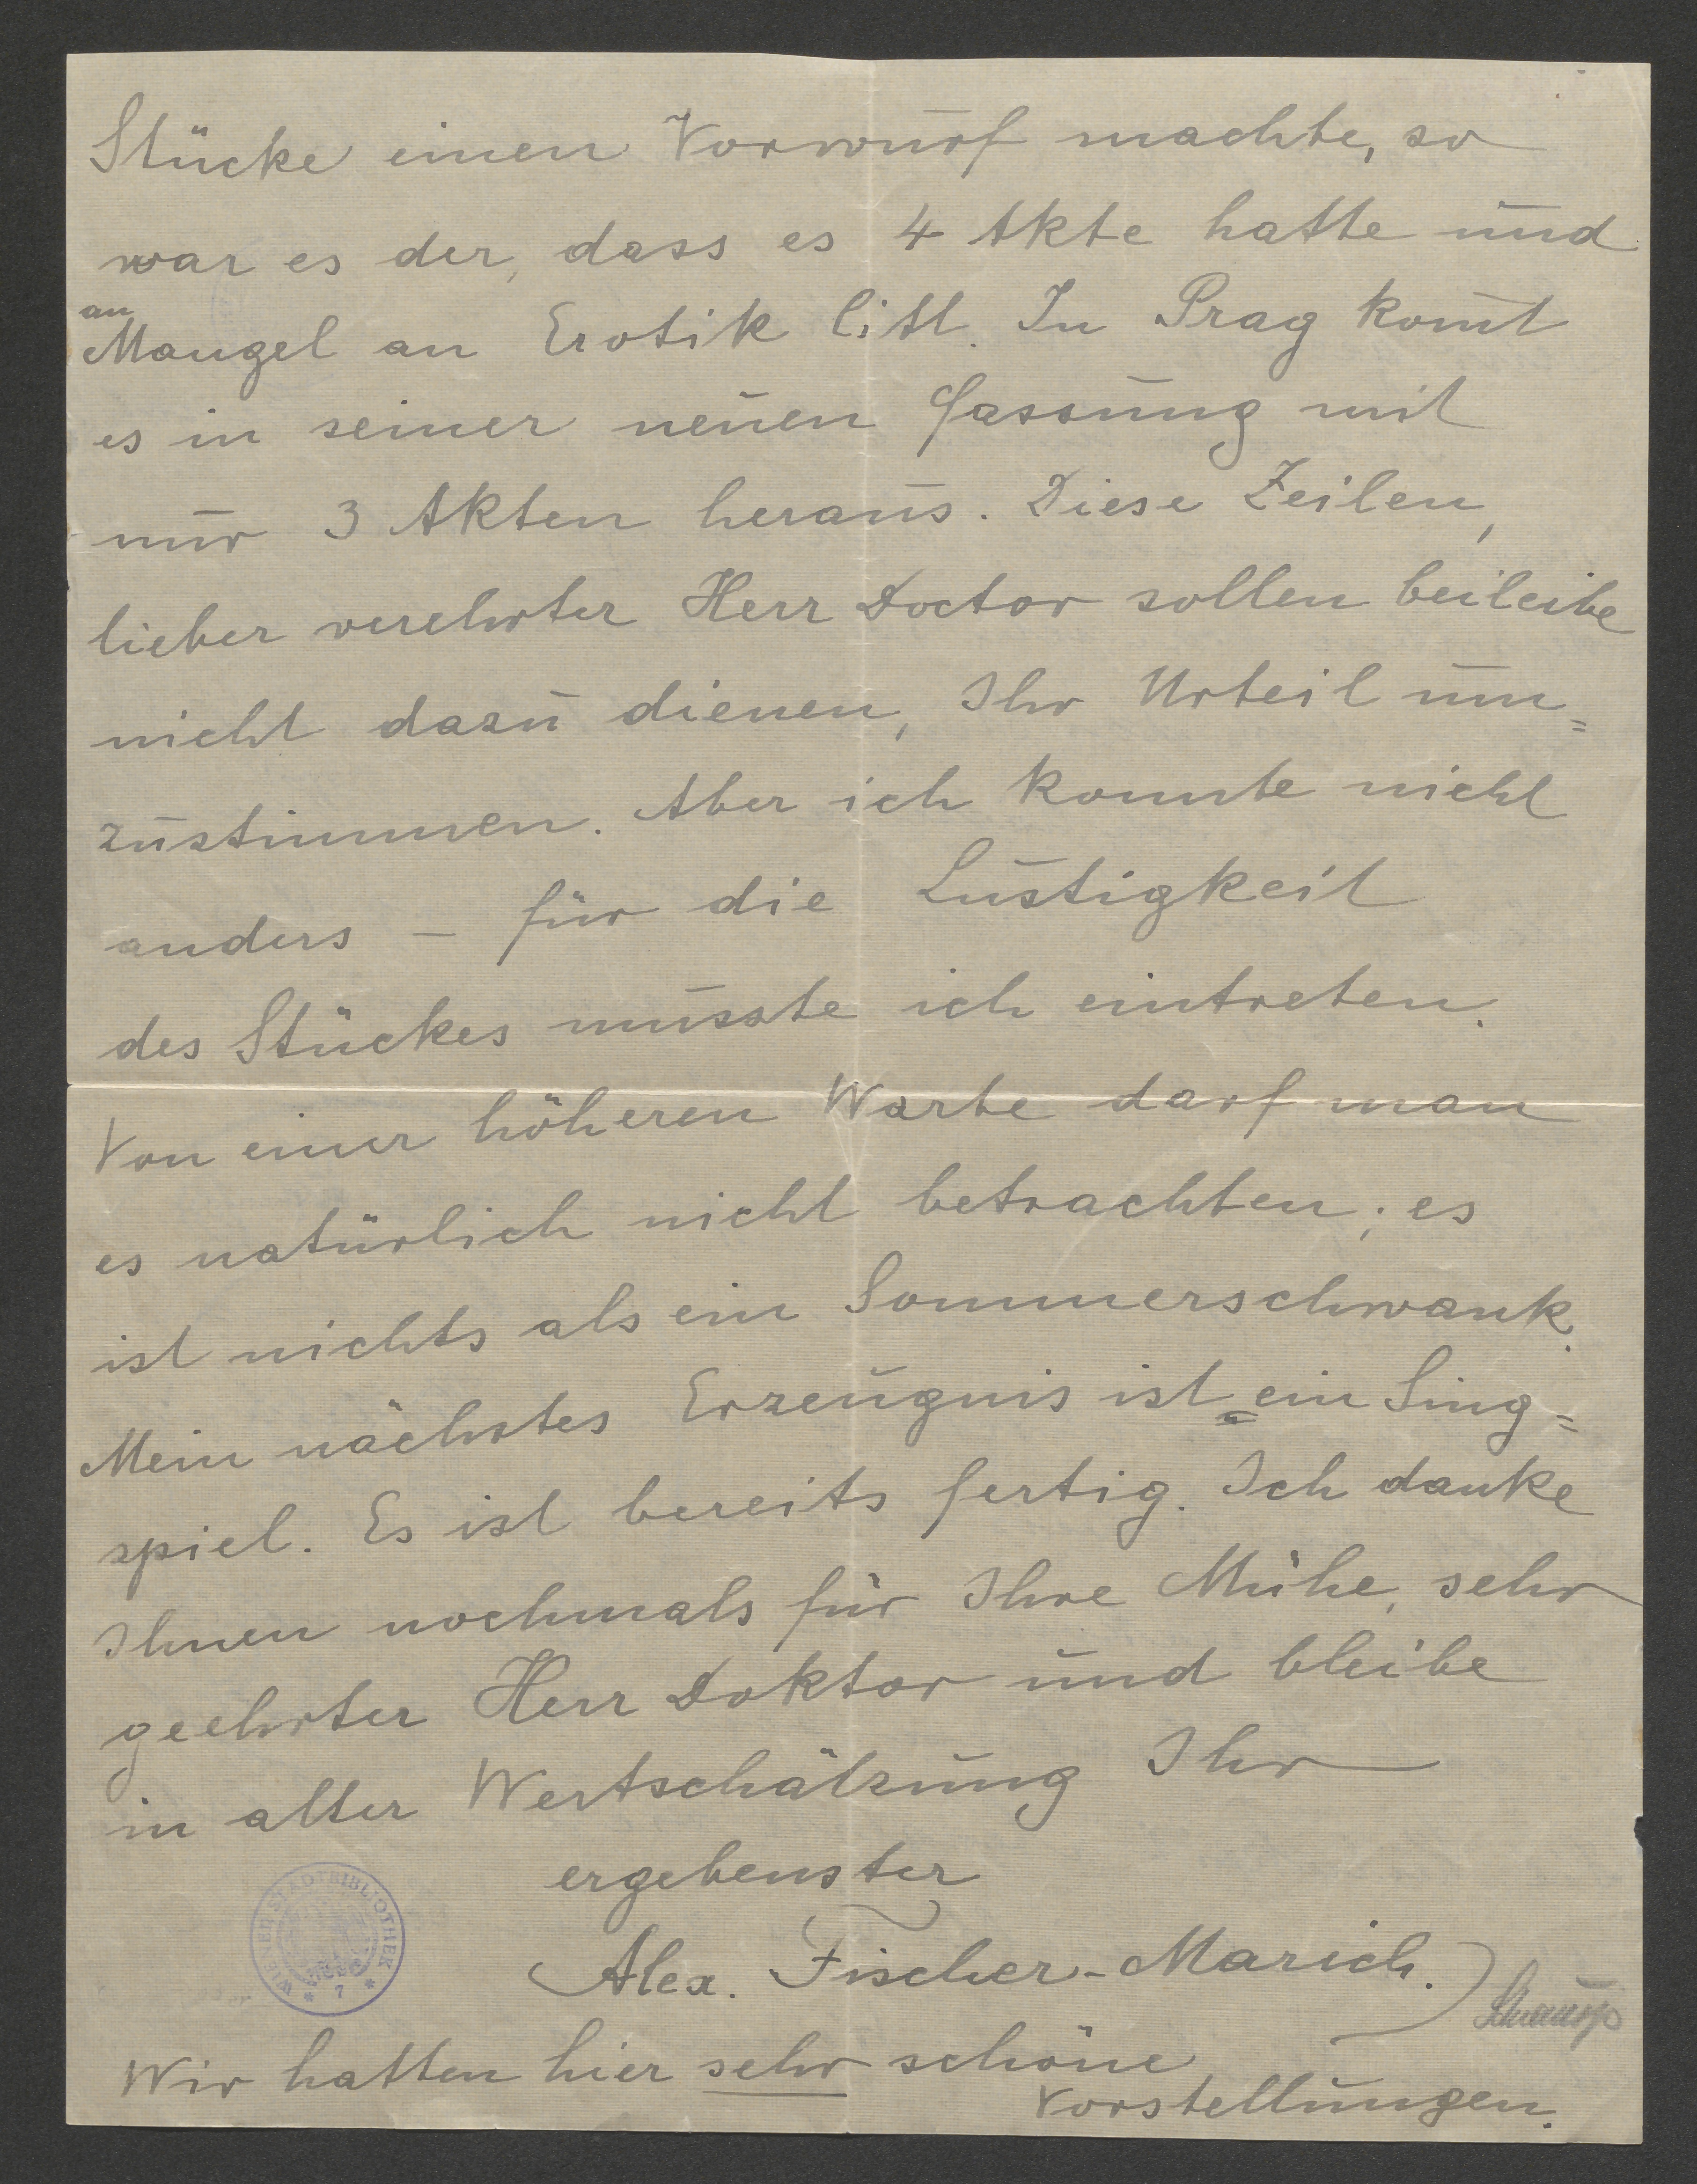 Stücke einen Vorwurf machte, so
war es der, dass es 4 Akte hatte und
an
Mangel an Erotik litt. In Prag kom̄t
es in seiner neuen Fassung mit
nur 3 Akten heraus. Diese Zeilen,
lieber verehrter Herr Doctor sollen beileibe
nicht dazu dienen, Ihr Urteil um=
zustimmen. Aber ich konnte nicht
anders – für die Lustigkeit
des Stückes musste ich eintreten.
Von einer höheren Warte darf man
es natürlich nicht betrachten; es
ist nichts als ein Sommerschwank.
Mein nächstes Erzeugnis ist ein Sing=
spiel. Es ist bereits fertig. Ich danke
Ihnen nochmals für Ihre Mühe, sehr
geehrter Herr Doktor und bleibe
in alter Wertschätzung Ihr
ergebenster
Alex. Fischer-Marich.
Wir hatten hier sehr schöne
Vorstellungen.
WIENER STADTBIBLIOTHEK * 7 *